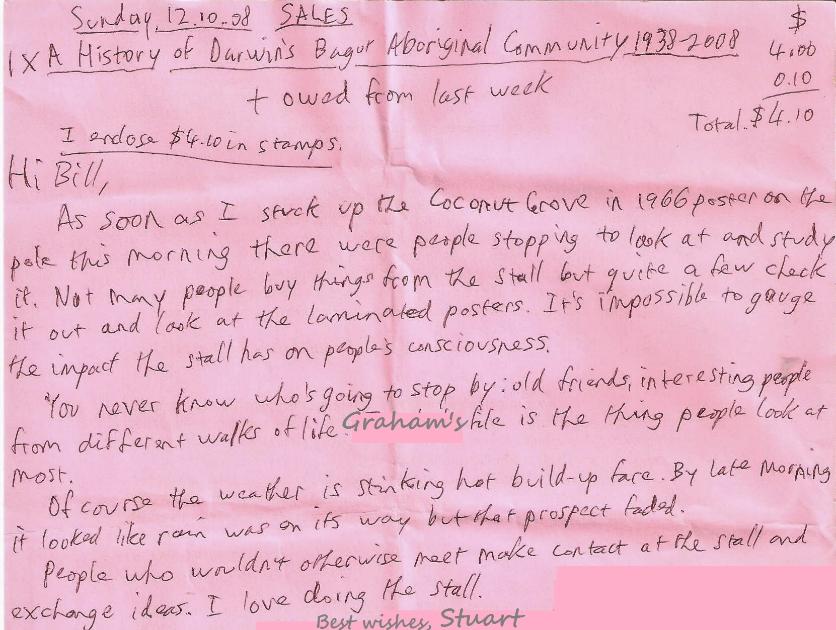 Sunday, 12.10.08 SALES $
1 X A History of Darwin's Bagot Aboriginal Community 1938-2008 4.00
+ owed from last week 0.10
Total. $4.10
I enclose $4.10 in stamps.
Hi Bill,
As soon as I stuck up the Coconut Grove in 1966 poster on the
pole this morning there were people stopping to look at and study
it. Not many people buy things from the stall but quite a few check
it out and look at the laminated posters. It's impossible to gauge
the impact the stall has on people's consciousness.
You never know who's going to stop by: old friends, interesting people
from different walks of life. Graham's file is the thing people look at
most.
Of course the weather is stinking hot build-up fare. By late morning
it looked like rain was on its way but that prospect faded.
People who wouldn't otherwise meet make contact at the stall and
exchange ideas. I love doing the stall.
Best wishes, Stuart